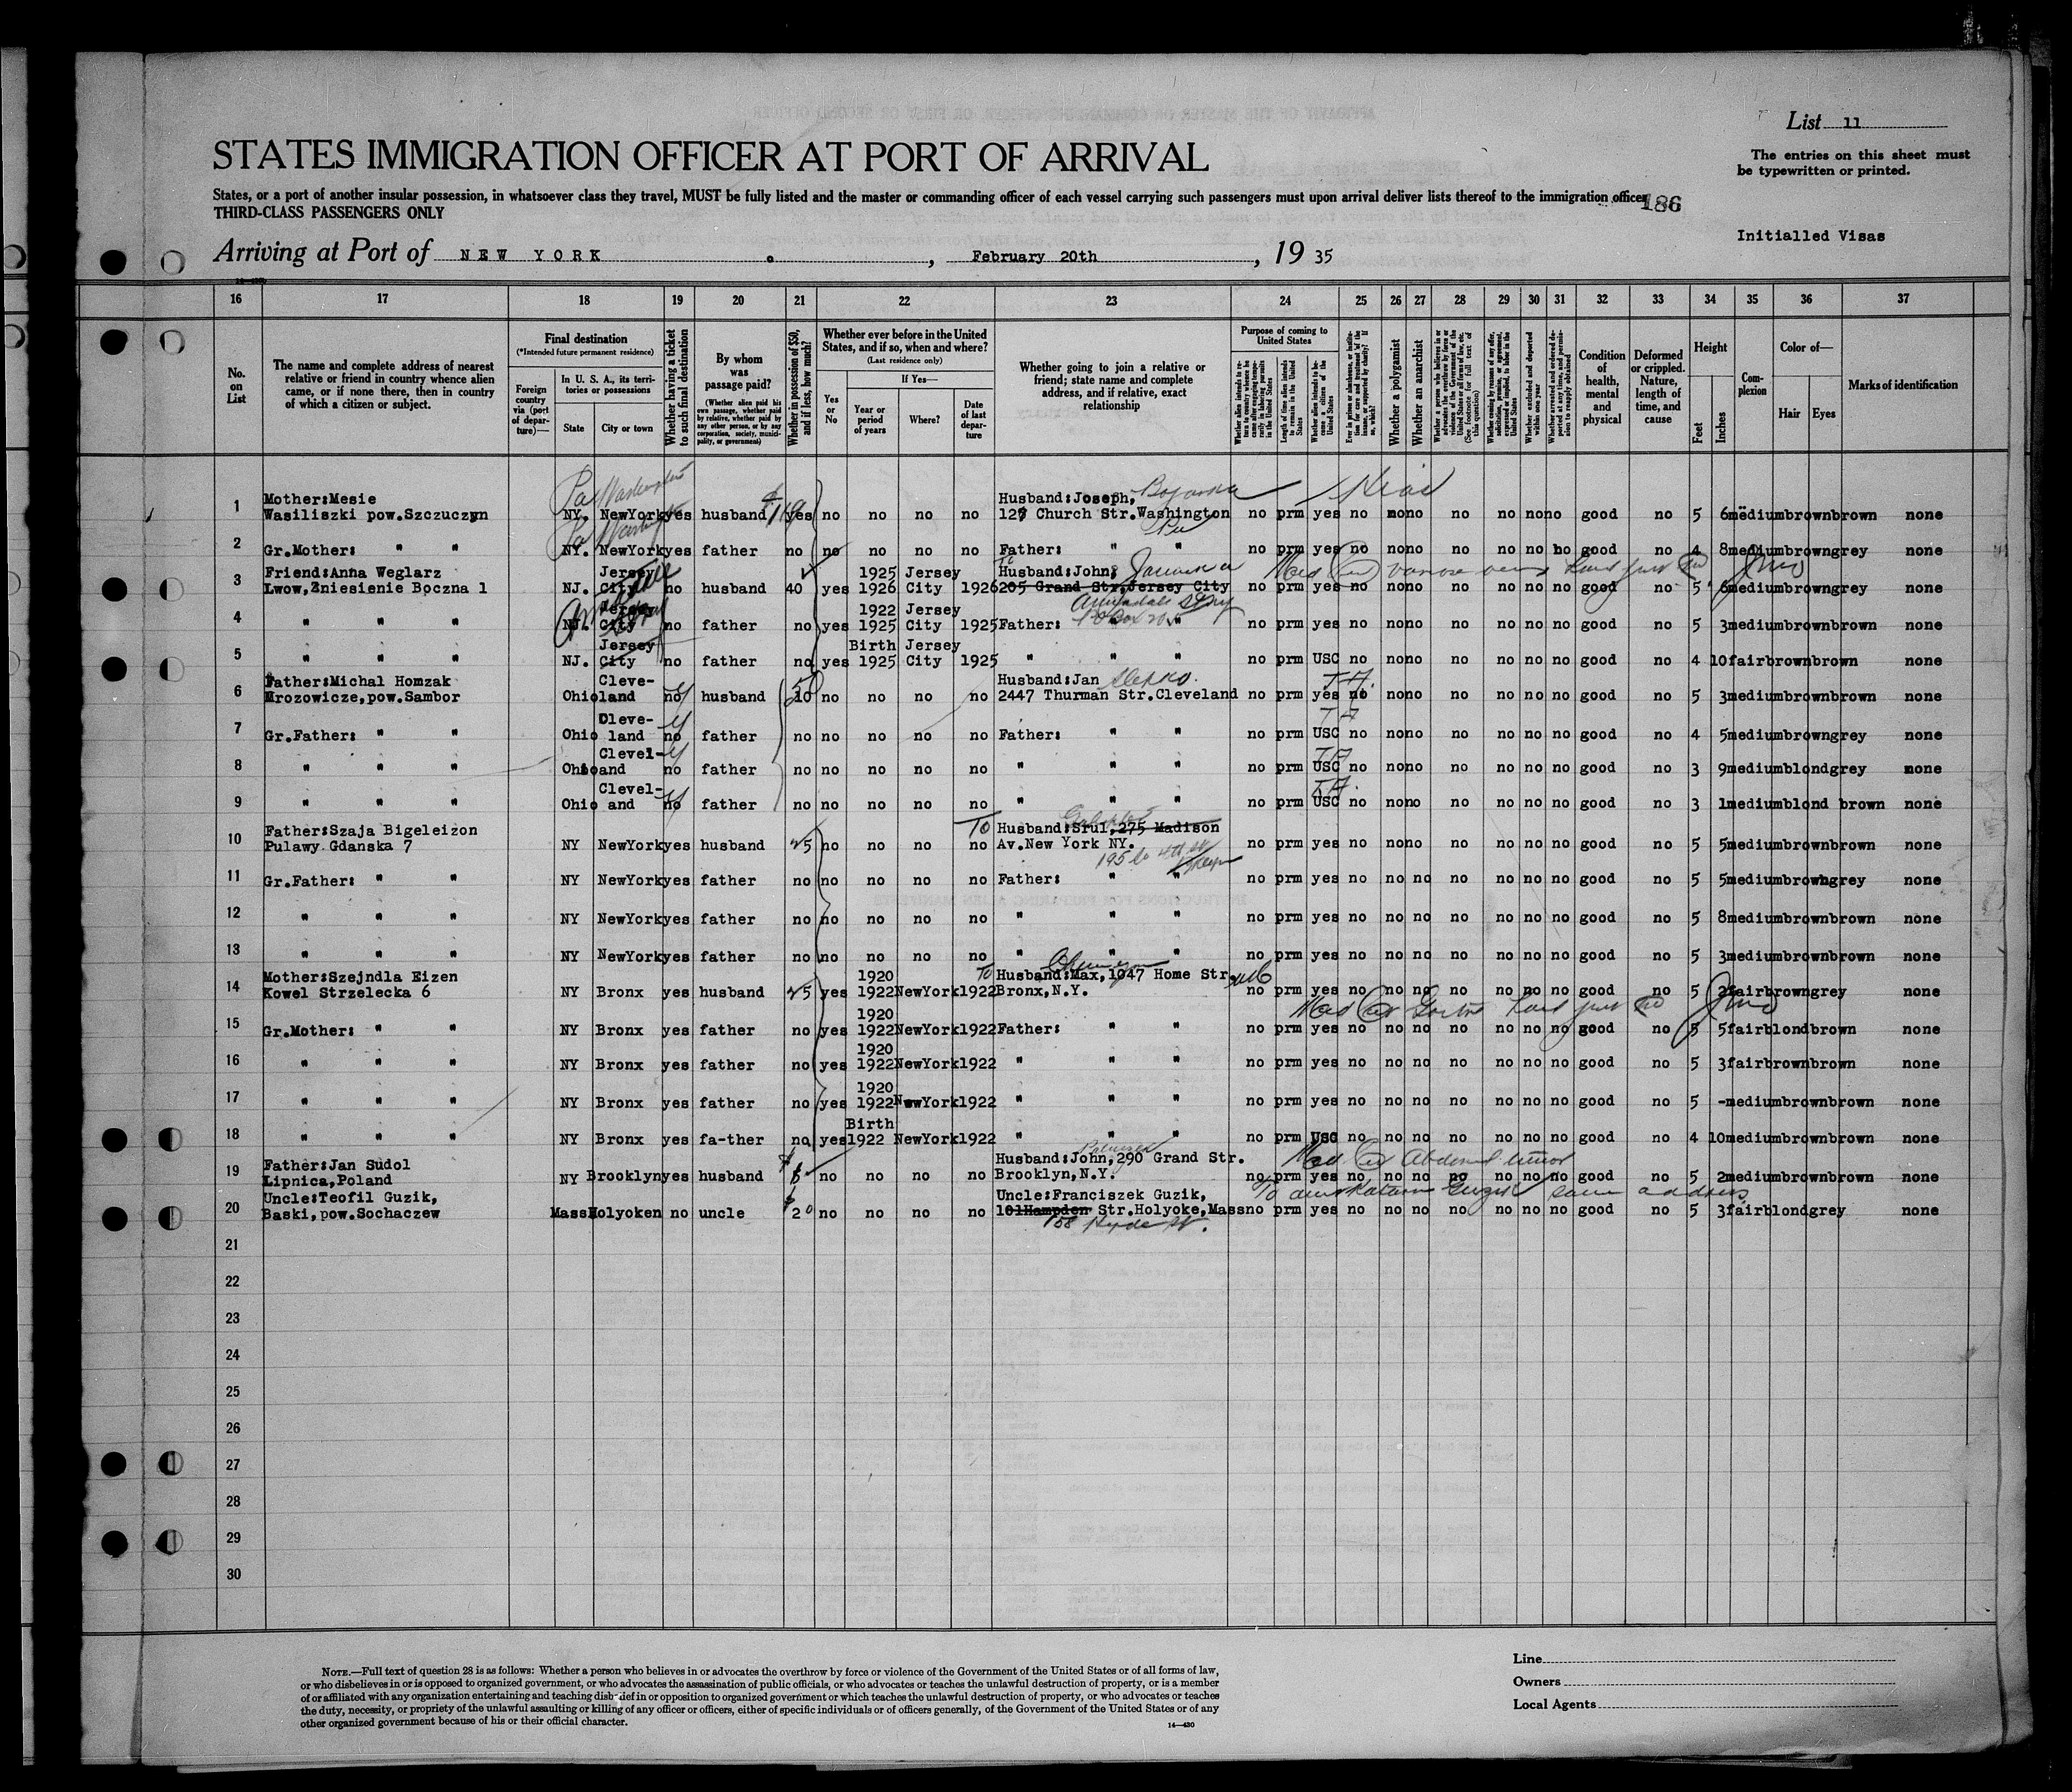 List 11
STATES IMMIGRATION OFFICER AT PORT OF ARRIVAL
The entries on this sheet must
be typewritten or printed.
States, or a port of another insular possession, in whatsoever class they travel, MUST be fully listed and the master or commanding officer of each vessel carrying such passengers must upon arrival deliver lists thereof to the immigration officer
186
THIRD-CLASS PASSENGERS ONLY
Initialled Visas
Arriving at Port of NEW YORK, February 20th, 19 35
16 17 18 19 20 21 22 23 24 25 26 27 28 29 30 31 32 33 34 35 36 37
No. on List
The name and complete address of nearest relative or friend in country whence alien came, or if none there, then in country of which a citizen or subject.
Final destination
(*Intended future permanent residence)
Foreign country via (port of departure)—
In U. S. A., its territories or possessions
State
City or town
Whether having a ticket to such final destination
By whom was passage paid?
(Whether alien paid his own passage, whether paid by relative, whether paid by any other person, or by any corporation, society, municipality, or government)
Whether in possession of $50, and if less, how much?
Whether ever before in the United States, and if so, when and where?
(Last residence only)
Yes or No
If Yes—
Year or period of years
Where?
Date of last departure
Whether going to join a relative or friend; state name and complete address, and if relative, exact relationship
Purpose of coming to United States
Length of time alien intends to remain in the United States
Whether alien intends to become a citizen of the United States
Whether a polygamist
Whether an anarchist
Condition of health, mental and physical
Deformed or crippled. Nature, length of time, and cause
Height
Feet
Inches
Complexion
Color of—
Hair
Eyes
Marks of identification
Pa Washington
1 Mother:Mesie Husband:Joseph,
Wasiliszki pow.Szczuczyn NY. NewYork yes husband yes no no no no 127 Church Str.Washington no prm yes no no no no no no no good no 5 6 medium brown brown none
Pa
2 Gr.Mother: " " NY. NewYork yes father no no no no no Father: " " no prm yes no no no no no no no good no 4 8 medium brown grey none
3 Friend:Anna Weglarz Jersey 1925 Jersey Husband:John,
Lwow,Zniesienie Boczna 1 NJ. City no husband 40 yes 1926 City 1926 205 Grand Str,Jersey City no prm yes no no no no no no no good no 5 6 medium brown grey none
4 Jersey 1922 Jersey
" " " NJ. City no father no yes 1925 City 1925 Father: " no prm yes no no no no no no no good no 5 3 medium brown brown none
5 Jersey Birth Jersey
" " " NJ. City no father no yes 1925 City 1925 " " " no prm USC no no no no no no no good no 4 10 fair brown brown none
6 Father:Michal Homzak Cleve- Husband:Jan Slepko.
Mrozowicze,pow.Sambor Ohio land no husband no no no no 2447 Thurman Str.Cleveland no prm yes no no no no no no no good no 5 3 medium brown brown none
7 Cleve-
Gr.Father: " " Ohio land no father no no no no no Father: " " no prm USC no no no no no no no good no 4 5 medium brown grey none
8 Clevel-
" " " Ohio and no father no no no no no " " " no prm USC no no no no no no no good no 3 9 medium blond grey none
9 Clevel-
" " " Ohio and no father no no no no no " " " no prm USC no no no no no no no good no 3 1 medium blond brown none
10 Father:Szaja Bigeleizon To Husband:Srul,275 Madison
Pulawy Gdanska 7 NY NewYork yes husband 25 no no no no Av.New York NY. no prm yes no no no no no no no good no 5 5 medium brown brown none
11 Gr.Father: " " NY NewYork yes father no no no no no Father: " " no prm yes no no no no no no no good no 5 5 medium brown grey none
12 " " " NY NewYork yes father no no no no no " " " no prm yes no no no no no no no good no 5 8 medium brown brown none
13 " " " NY NewYork yes father no no no no no " " " no prm yes no no no no no no no good no 5 3 medium brown brown none
14 Mother:Szejndla Eizen 1920 To Husband:Max,1047 Home Str.
Kowel Strzelecka 6 NY Bronx yes husband 25 yes 1922 NewYork 1922 Bronx,N.Y. no prm yes no no no no no no no good no 5 2 fair brown grey none
15 1920
Gr.Mother: " " NY Bronx yes father no yes 1922 NewYork 1922 Father: " " no prm yes no no no no no no no good no 5 5 fair blond brown none
16 1920
" " " NY Bronx yes father no yes 1922 NewYork 1922 " " " no prm yes no no no no no no no good no 5 3 fair brown brown none
17 1920
" " " NY Bronx yes father no yes 1922 NewYork 1922 " " " no prm yes no no no no no no no good no 5 - medium brown brown none
18 Birth
" " " NY Bronx yes fa-ther no yes 1922 NewYork 1922 " " " no prm USC no no no no no no no good no 4 10 medium brown brown none
19 Father:Jan Sudol Husband:John,290 Grand Str.
Lipnica,Poland NY Brooklyn yes husband no no no no Brooklyn,N.Y. no prm yes no no no no no no no good no 5 2 medium brown brown none
20 Uncle:Teofil Guzik, Uncle:Franciszek Guzik,
Baski,pow.Sochaczew Mass Holyoken no uncle 20 no no no no 101 Hampden Str.Holyoke,Mass no prm yes no no no no no no no good no 5 3 fair blond grey none
21
22
23
24
25
26
27
28
29
30
NOTE.—Full text of question 28 is as follows: Whether a person who believes in or advocates the overthrow by force or violence of the Government of the United States or of all forms of law,
or who disbelieves in or is opposed to organized government, or who advocates the assassination of public officials, or who advocates or teaches the unlawful destruction of property, or is a member
of or affiliated with any organization entertaining and teaching disbelief in or opposition to organized government or which teaches the unlawful destruction of property, or who advocates or teaches
the duty, necessity, or propriety of the unlawful assaulting or killing of any officer or officers, either of specific individuals or of officers generally, of the Government of the United States or of any
other organized government because of his or their official character.
14—430
Line
Owners
Local Agents